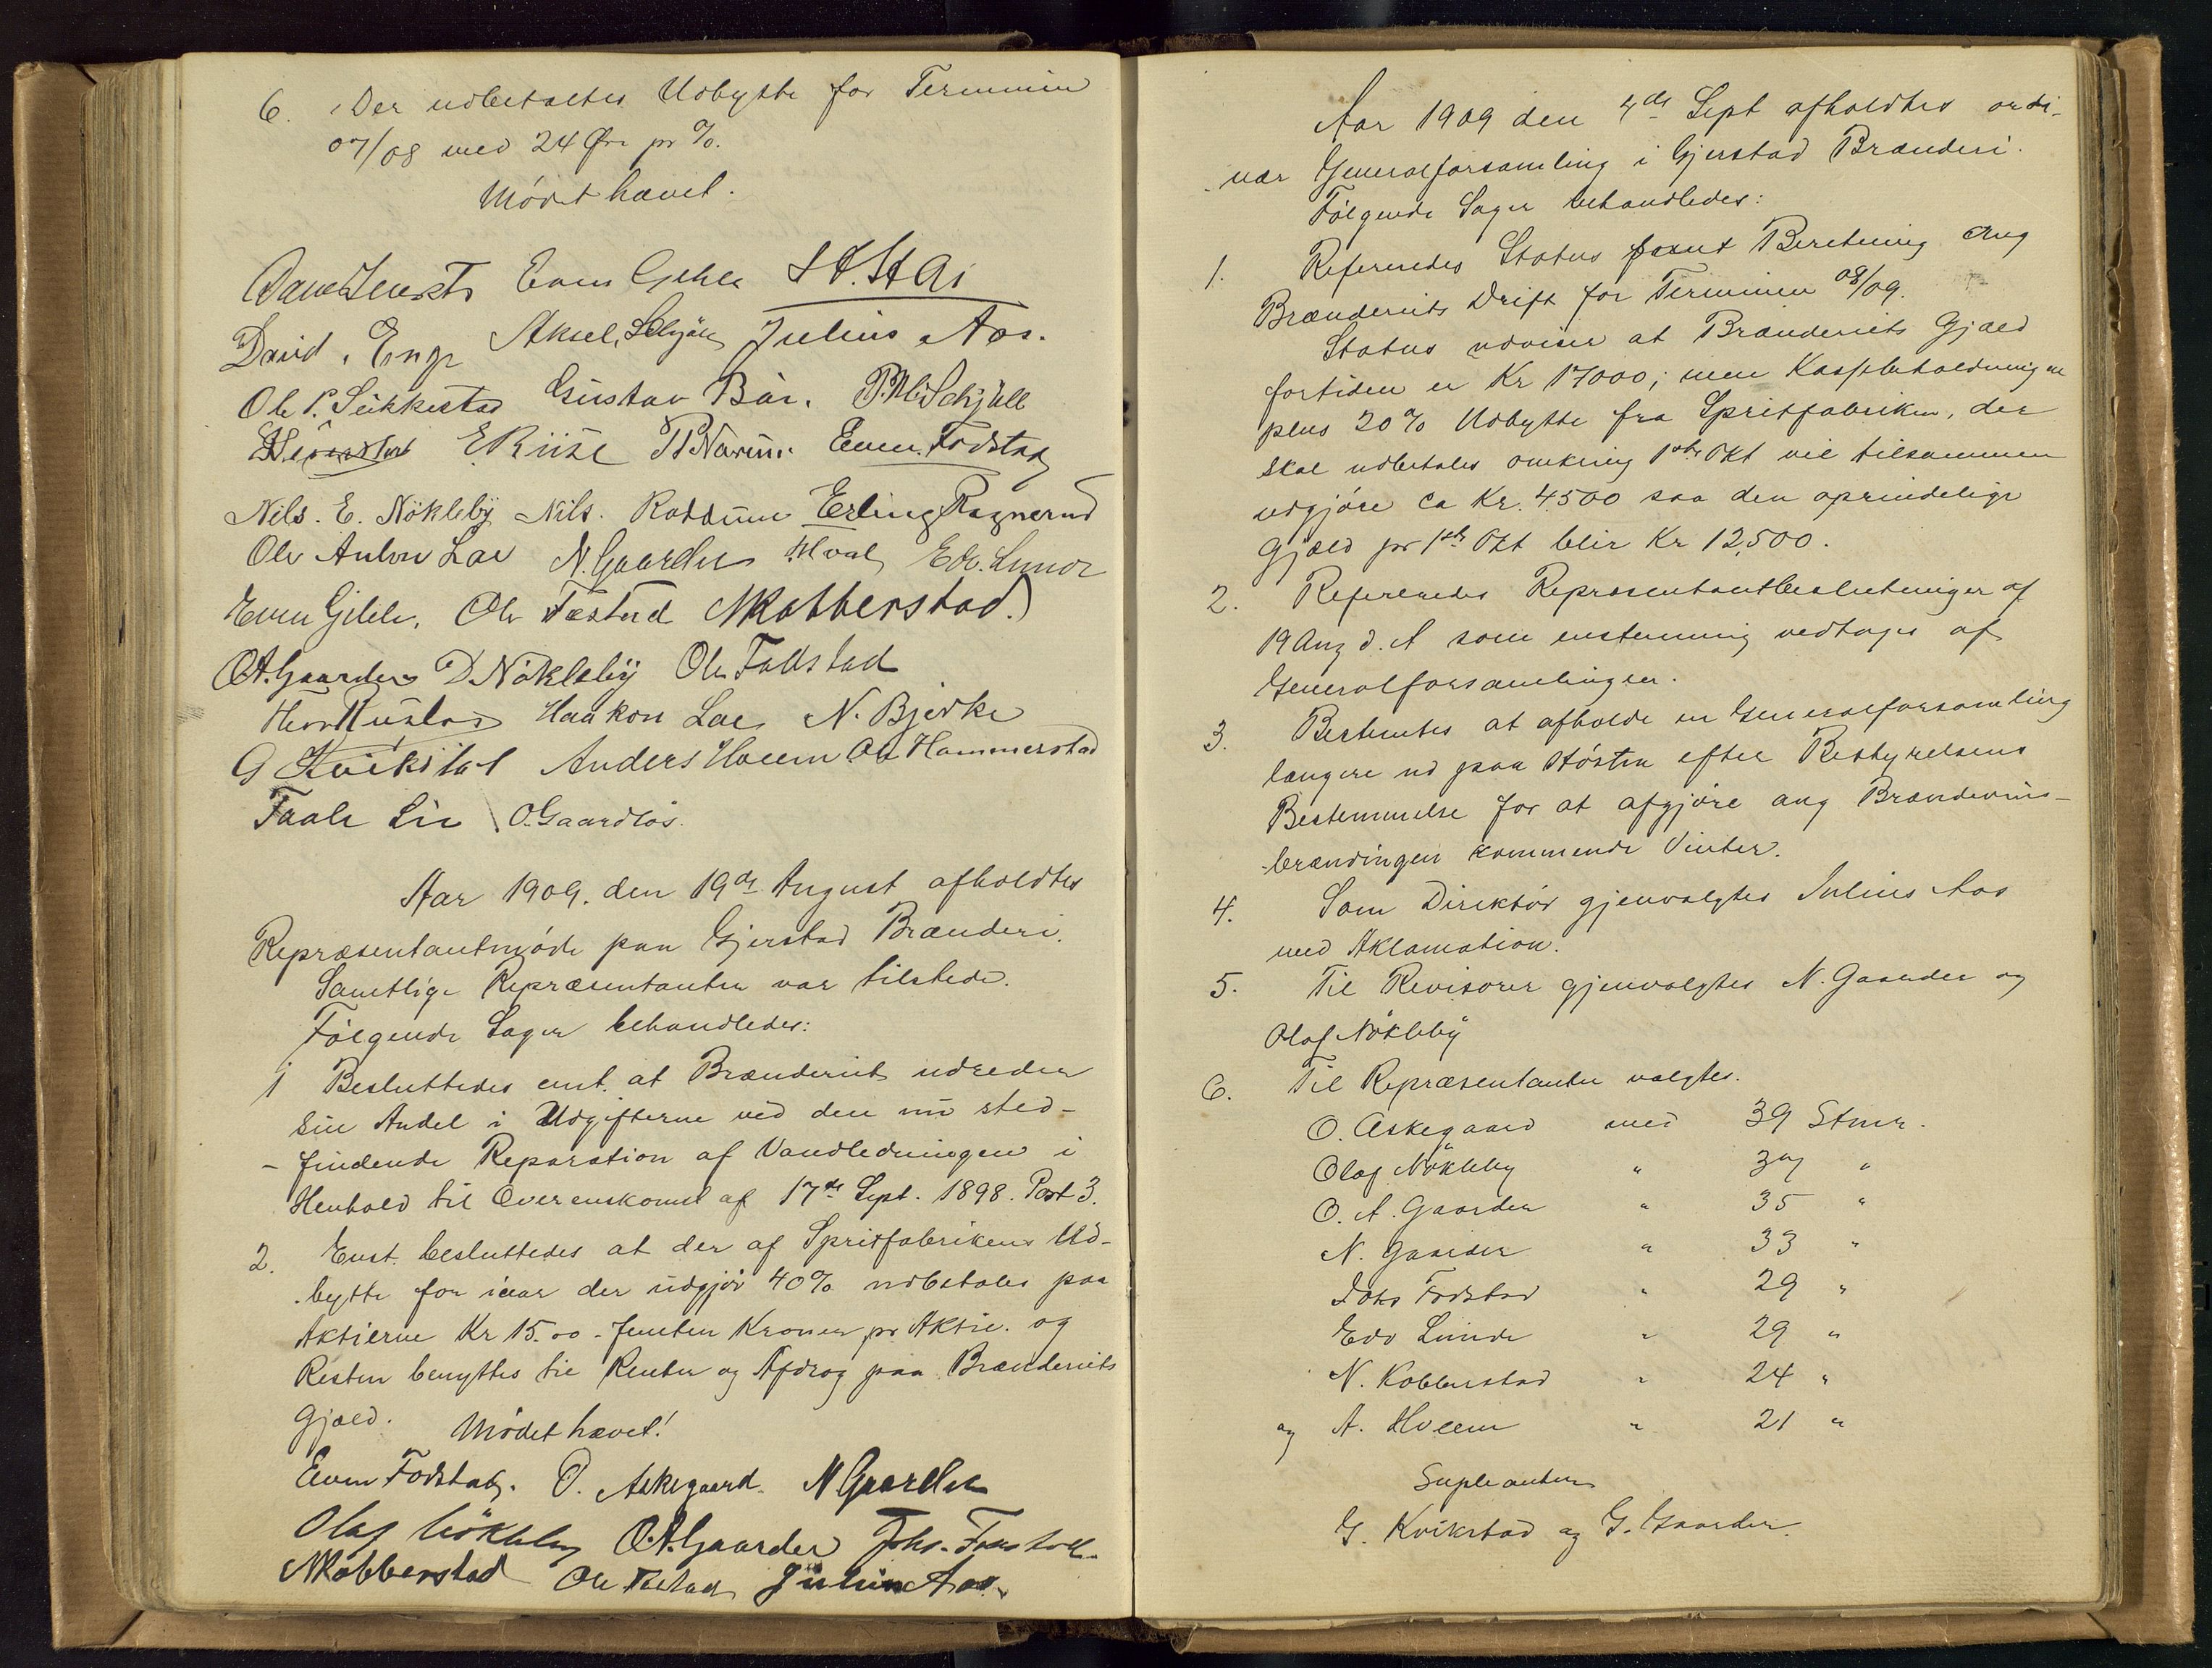 6. Der udbetaltes Udbytte for Terminen
07/08 med 24 Øre pr %.
Mödet hævet.
Even Gihle H. Stai
David. Enge Aksel Julius Aas.
Ole P. Sükkestad Güstav Bär. P.M. Schjöll
E Riise Even Fodstad
Nils. E. Nökleby Nils. Raddum Erling Ragnerud
Ole Anton Lae N. Gaarder Hval Edv. Lunde
Even Gihle, Ole Fæstad N Kobberstad.
O.A. Gaarder D. Nökleby Ole Fallstad
Haakon Lae, N. Bjerke
G Kvikstad Anders Hveem Ole Hammerstad
Taale Lie O. Gaardløs.
Aar 1909. den 19de August afholdtes
Repræsentantmöde paa Gjerstad Brænderi.
Samtlige Repræsentanter var tilstede.
Følgende Sager behandledes:
1 Besluttedes enst. at Brænderiet udreder
sin Andel i Udgifterne ved den nu sted-
- findende Reparation af Vandledningen i
Henhold til Overenskomst af 17de Sept. 1898. Post 3.
2. Enst. besluttedes at der af Spritfabrikens Ud-
bytte for iaar der udgjör 40% udbetales paa
Aktierne Kr 15.00 - femten Kroner pr Aktie. og
Resten benyttes til Renter og Afdrag paa Brænderiets
Gjæld. Mödet hævet!
Even Fodstad. O. Askegaard. N Gaarder
Olaf Nökleby O.A. Gaarder Johs. Fodstad.
N Kobberstad Ole Fæstad Julius Aas.
Aar 1909 den 4de Sept afholdtes ordi-
- nær Generalforsamling i Gjerstad Brænderi.
Følgende Sager behandledes:
1. Refereredes Status samt Beretning ang
Brænderiets Drift for Terminen 08/09.
Status udviser at Brænderiets Gjæld
fortiden er Kr 17000; men Kassebeholdningen
plus 20% Udbytte fra Spritfabriken, der
skal udbetales omkring 1ste Okt vil tilsammen
udgjöre ca Kr. 4500 saa den oprindelige
Gjæld pr 1ste Okt blir Kr 12,500.
2. Refereredes Repræsentantbeslutninger af
19 Aug d. A som enstemmig vedtages af
Generalforsamlingen.
3. Bestemtes at afholde en Generalforsamling
længere ud paa Hösten efter Bestyrelsens
Bestemmelse for at afgjöre ang Brændevins-
- brændingen kommende Vinter.
4. Som Direktör gjenvalgtes Julius Aas
med Aklamation.
5. Til Revisorer gjenvalgtes N. Gaarder og
Olaf Nökleby
6. Til Repræsentanter valgtes.
O. Askegaard med 39 Stmr.
Olaf Nökleby " 37 "
O. A. Gaarder " 35 "
N. Gaarder " 33 "
Johs Fodstad " 29 "
Edv Lunde " 29 "
N. Kobberstad " 24 "
og A. Hveem " 21 "
Supleanter
G. Kvikstad og G. Gaarder.